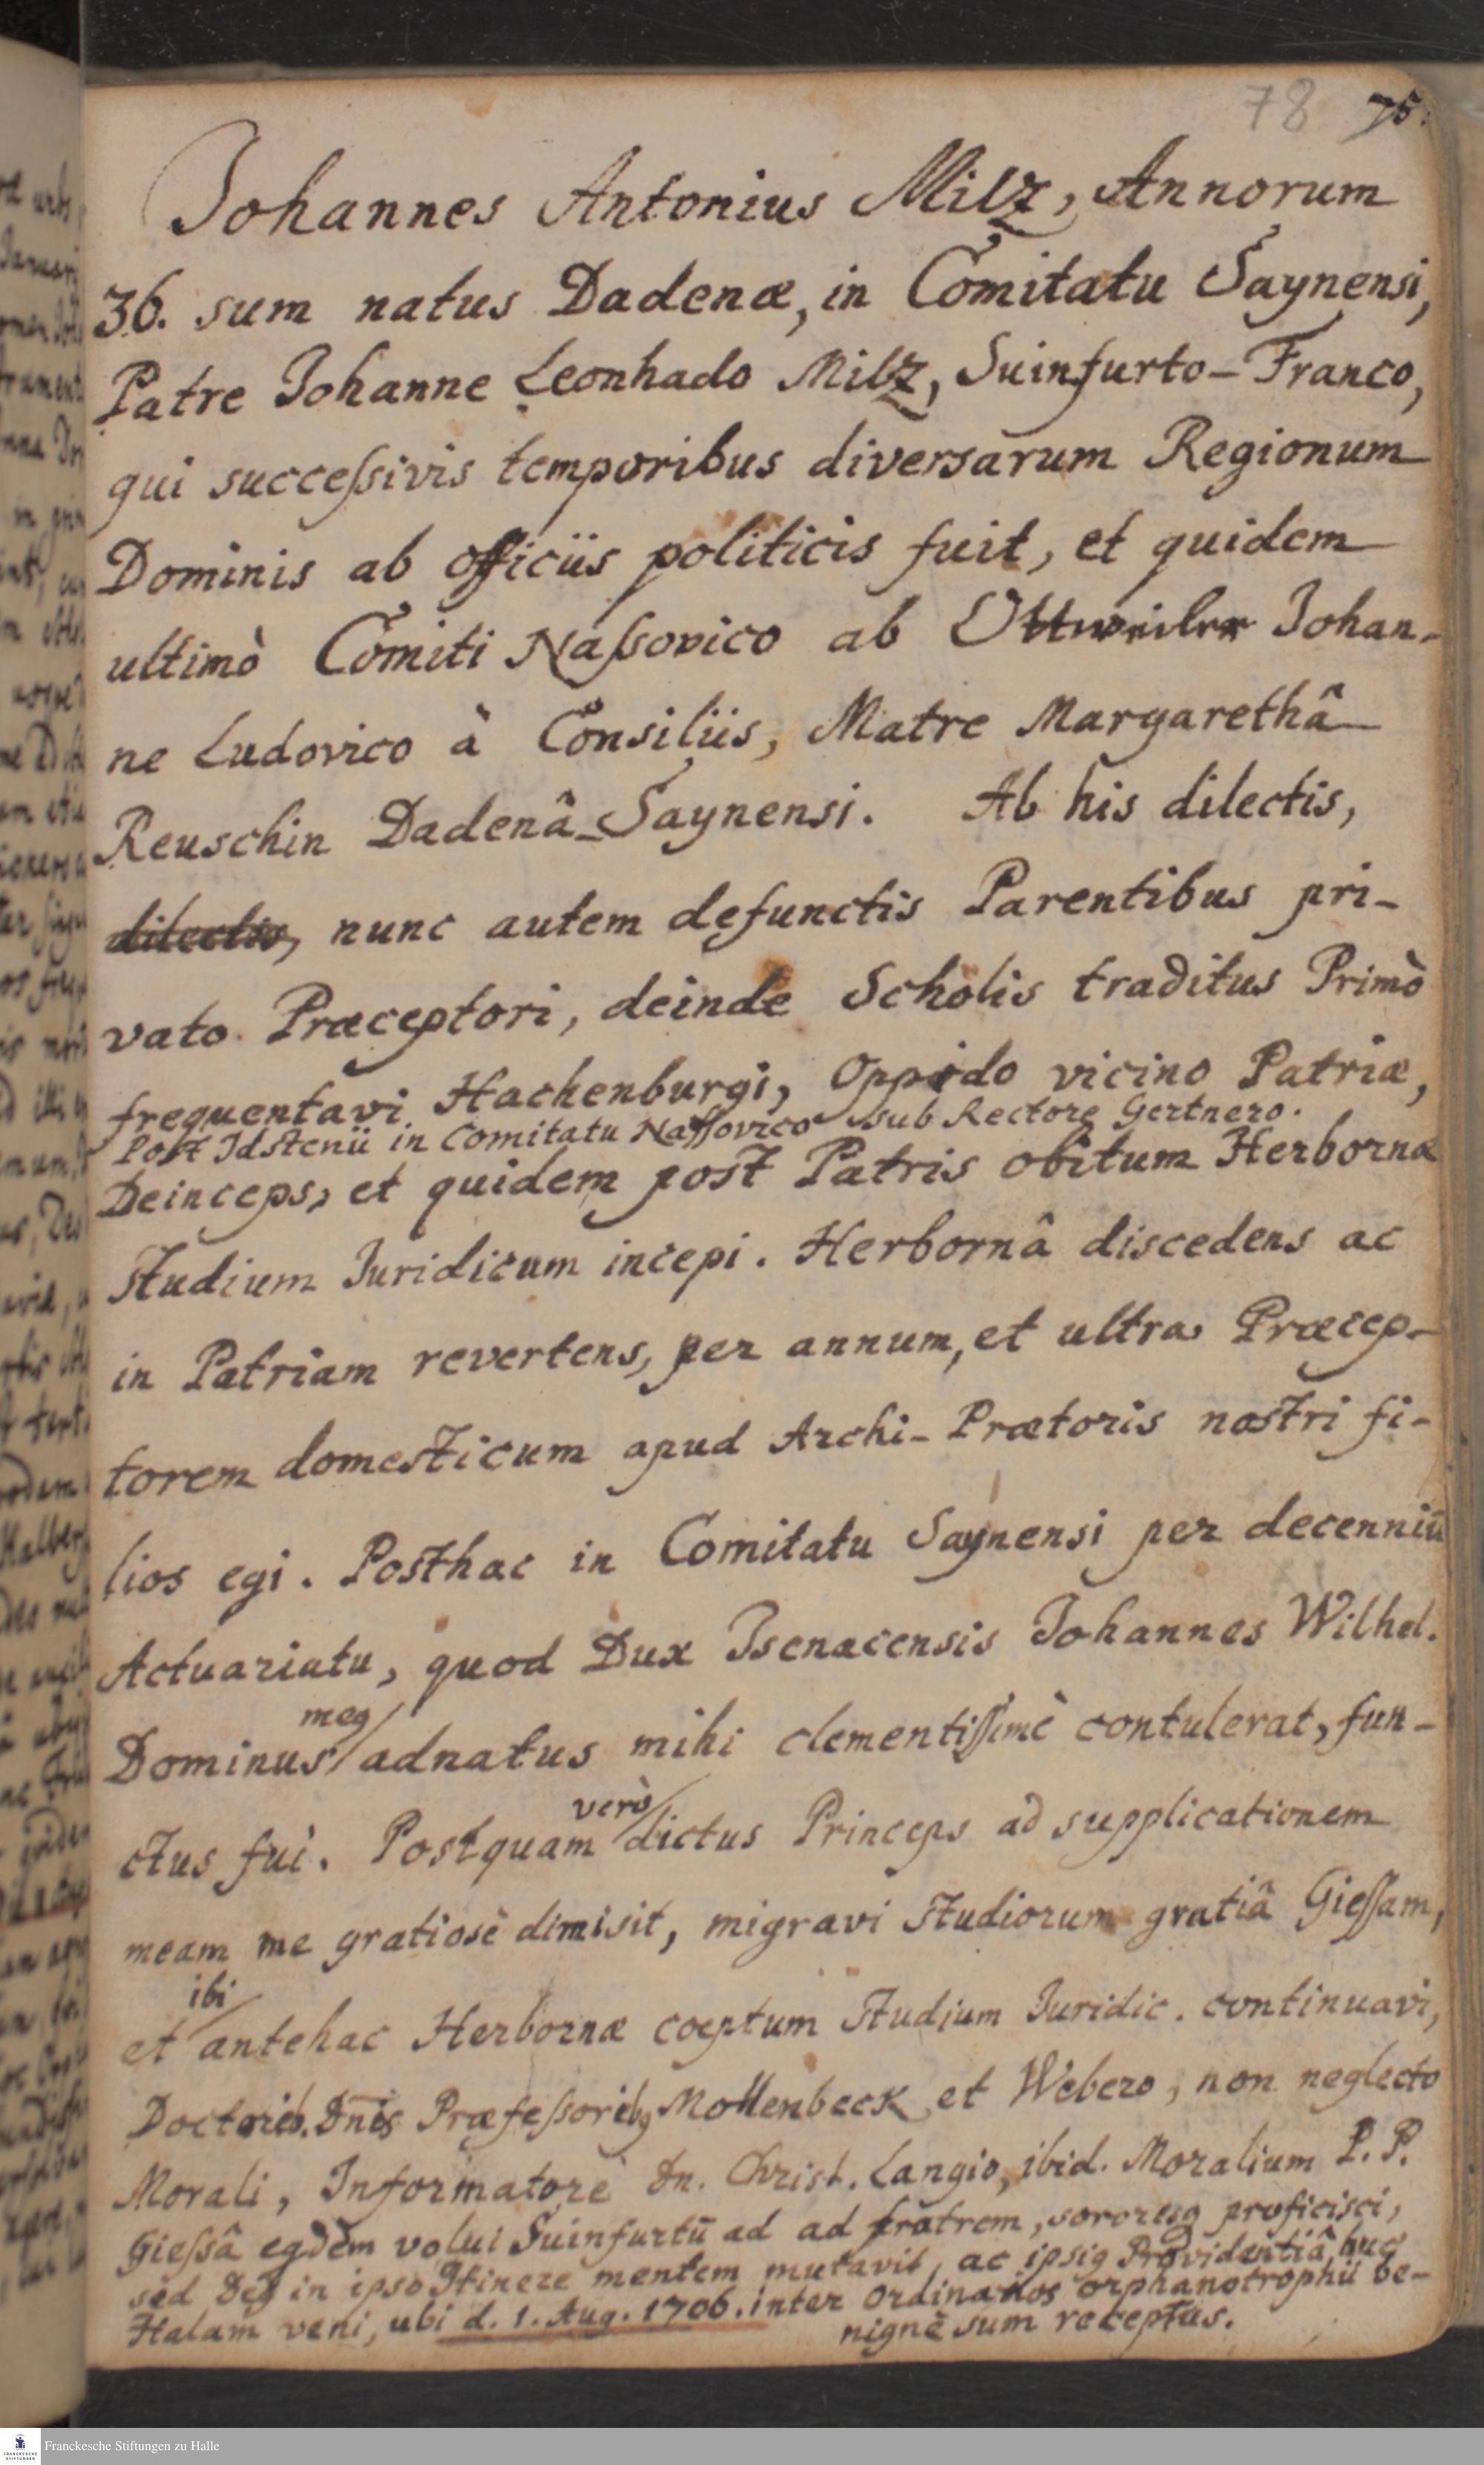 78 75.
Johannes Antonius Milz, Annorum
36. sum natus Dadenæ, in Comitatu Saynensi,
Patre Johanne Leonhado Milz, Suinfurto-Franco,
qui succeſsivis temporibus diversarum Regionum
Dominis ab officiis politicis fuit, et quidem
ultimò Comiti Naſsovico ab Ottweiler Johan-
ne Ludovico à Consiliis, Matre Margarethâ
Reuschin Dadenâ-Saynensi. Ab his dilectis,
dilectis, nunc autem defunctis Parentibus pri-
vato Præceptori, deinde Scholis traditus Primò
frequentavi Hachenburgi, Oppido vicino Patriæ,
Post Idstenii in Comitatu Naſſovico sub Rectore Gertnero.
Deinceps, et quidem post Patris obitum Herbornæ
Studium Juridicum incepi. Herbornâ discedens ac
in Patriam revertens, per annum, et ultra Præcep-
torem domesticum apud Archi-Prætoris nostri fi-
lios egi. Posthac in Comitatu Saynensi per decenniū
Actuariatu, quod Dux Isenacensis Johannes Wilhel.
meg
Dominus adnatus mihi clementiſſimè contulerat, fun-
verò
ctus fui. Postquam dictus Princeps ad supplicationem
meam me gratiosè dimisit, migravi Studiorum gratiâ Gieſſam,
ibi
et antehac Herbornæ coeptum Studium Juridic. continuavi,
Doctorib. Dn̄is Præfeſsoribg Mollenbeck et Webero, non neglecto
Morali, Informatore Dn. Christ. Langio, ibid. Moralium P. P.
Gieſsâ egdem volui Suinfurtū ad ad fratrem, sororesg proficisci,
sed Deg in ipso Itinere mentem mutavit, ac ipsig Providentiâ huc
Halam veni, ubi d. 1. Aug. 1706. inter Ordinarios orphanotrophii be-
nignè sum receptus.
Franckesche Stiftungen zu Halle